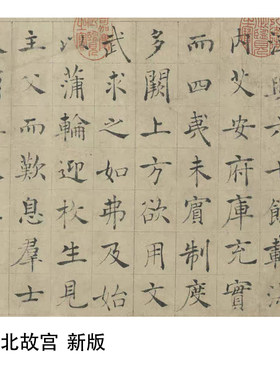 漢興六十餘載海
內艾安府庫充實
而四夷未賓制度
多闕上方欲用文
武求之如弗及始
以蒲輪迎枚生見
主父而歎息羣士
北故宫 新版